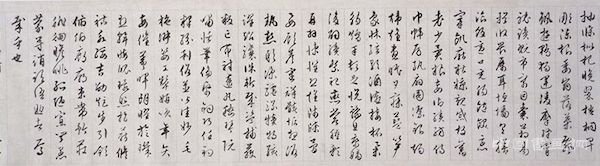 抽條枇杷晚翠梧桐早
凋陳根委翳落葉飄
颻遊鵾獨運凌摩絳霄
耽讀玩市寓目囊箱易
輶攸畏屬耳垣牆具膳
餐飯適口充腸飽飫烹
宰飢厭糟糠親戚故舊
老少異糧妾御績紡侍
巾帷房紈扇圓潔銀燭
煒煌晝眠夕寐藍筍
象床弦歌酒宴接杯舉
觴矯手頓足悅豫且康嫡
後嗣續祭祀烝嘗稽顙
再拜悚懼恐惶箋牒簡
要顧答審詳骸垢想浴
執熱願涼驢騾犢特駭
躍超驤誅斬賊盜捕獲
叛亡布射遼丸嵇琴阮
嘯恬筆倫紙鈞巧任釣
釋紛利俗並皆佳妙毛
施淑姿工顰妍笑年矢
每催曦暉朗曜璇
璣懸斡晦魄環照指薪修
祜永綏吉劭矩步引領
俯仰廊廟束帶矜莊
徘徊瞻眺孤陋寡聞愚
蒙等誚謂語助者焉
哉乎也